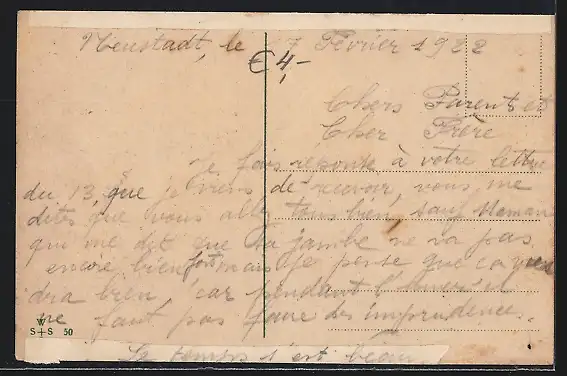 Neustadt, le 7 Février 1922
€4,-
Chers Parents et
Cher Frère
Je fais réponse à votre lettre
du 13, que je viens de recevoir, vous me
dites que vous allez tous bien, sauf Maman
qui me dit que sa jambe ne va pas
encore bien fort mais je pense que ca vien
dra bien, car pendant l'hiver il
ne faut pas faire des imprudences.
Le temps s'est beau
W
S+S 50